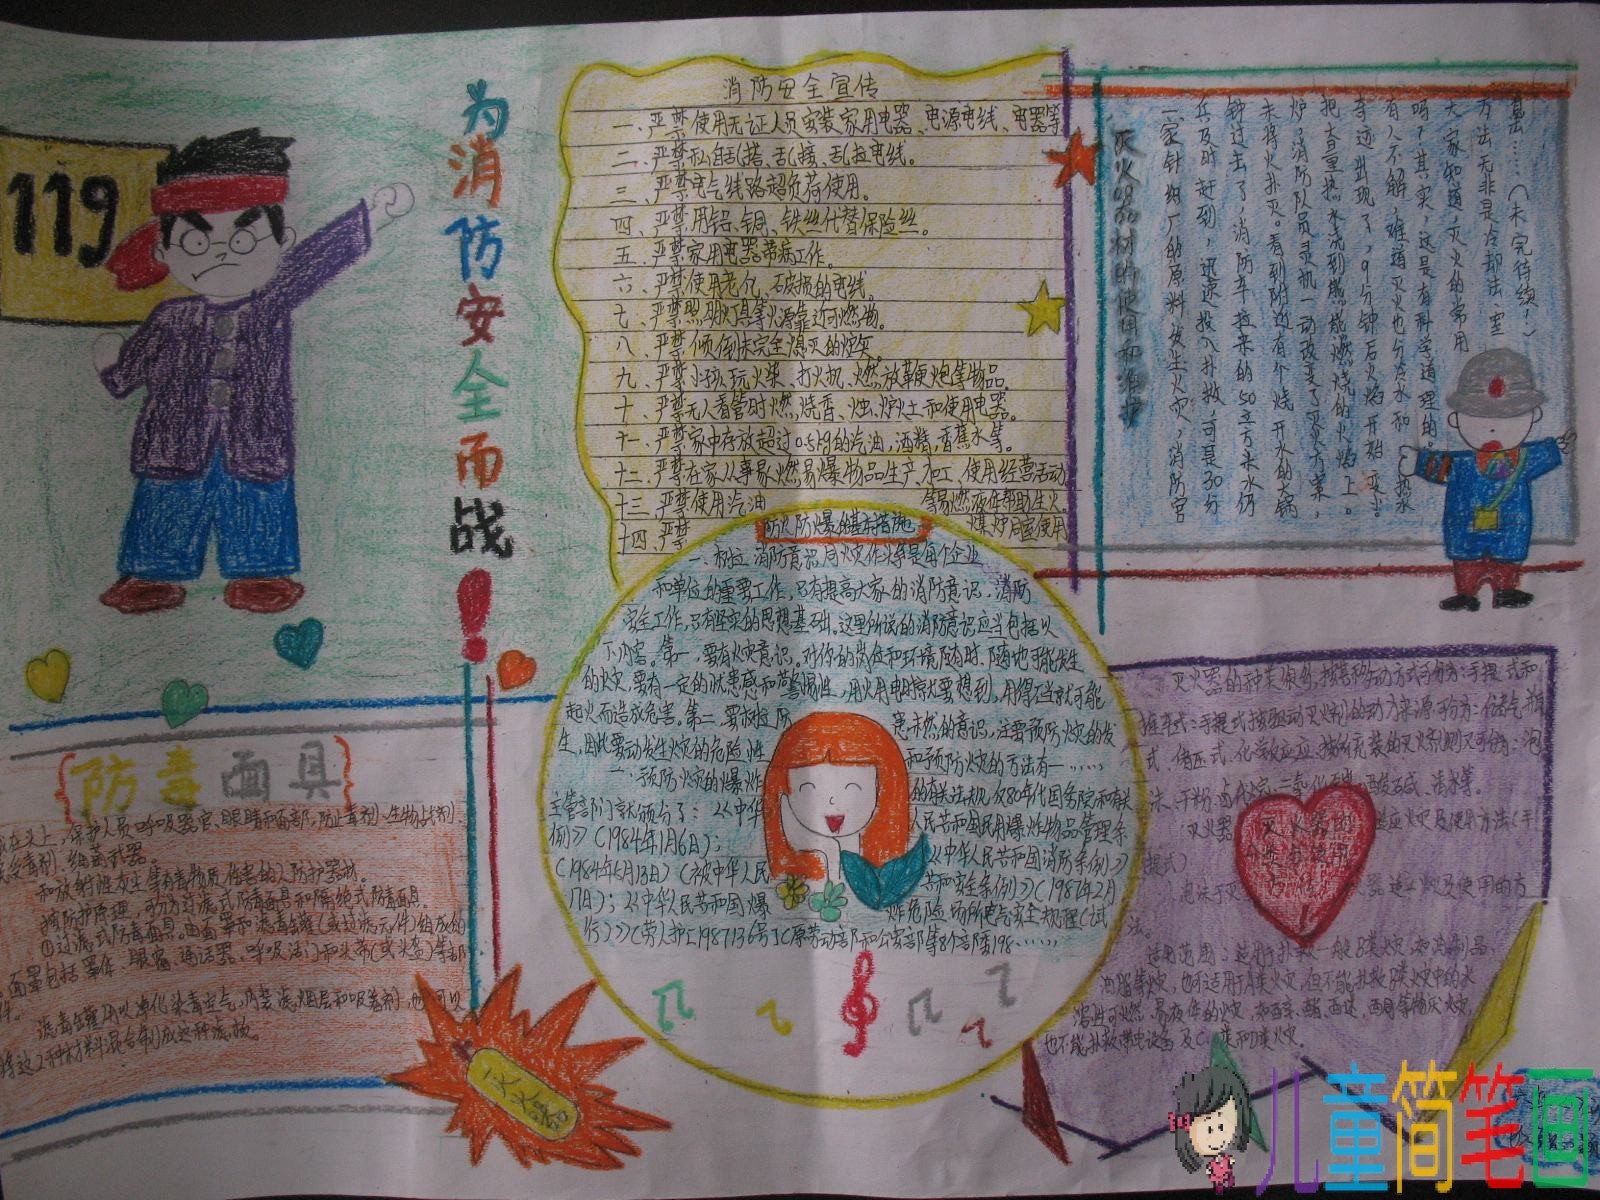 119
为消防安全而战！
消防安全宣传
一、严禁使用无证人员安装家用电器、电源电线、电器等
二、严禁私自乱搭、乱接、乱拉电线。
三、严禁电气线路超负荷使用。
四、严禁用铝、铜、铁丝代替保险丝。
五、严禁家用电器带病工作。
六、严禁使用老化、破损的电线。
七、严禁照明灯具等火源靠近可燃物。
八、严禁倾倒未完全熄灭的炉灰。
九、严禁小孩玩火柴、打火机、燃放革便炮等物品。
十、严禁无人看管时燃烧香、烛、炉灶和使用电器。
十一、严禁家中存放超过0.5kg的汽油，酒精，香蕉水等。
十二、严禁在家从事易燃易爆物品生产、加工、使用经营活动
十三、严禁使用汽油 等易燃液体帮助生火。
十四、严禁 煤炉同室使用
灭火器材的使用和维护
一家针织厂的原料发生火灾，消防官
兵及时赶到，迅速投入扑救，可是30分
钟过去了，消防车拉来的50立方米水仍
未将火扑灭。看到附近有个烧开水的大锅
炉，消防队员灵机一动改变了灭火方案，
把大量热水浇到熊熊燃烧的火焰上。
奇迹出现了，9分钟后火焰开始变小。
有人不解，难道灭火也分冷水和热水
吗？其实，这是有科学道理的。
大家知道，灭火的常用
方法无非是冷却法、窒
息……（未完待续！）
防火防爆的基本措施
一、树立消防意识，与火灾作斗争是每个企业
和单位的重要工作，只有提高大家的消防意识，消防
安全工作，只有坚实的思想基础。这里所说的消防意识应当包括以
下内容。第一，要有火灾意识。对你的岗位和环境随有时、随地可能发生
的火灾，要有一定的忧患感和警惕性，用火用电时就要想到，用得不当就可能
起火而造成危害。第二，要树立防 患未然的意识，注重预防火灾的发
生，因此要动发生火灾的危险性 和预防火灾的方法有一……
二、预防火灾的爆炸 的有关法规，仅80年代国务院和有关
主管部门就颁分了：《中华 人民共和国民用爆炸物品管理条
例》（1984年1月6日）； 《中华人民共和国消防条例》
（1984年5月13日）（被中华人民 共和安全条例》（1987年2月
17日）；《中华人民共和国爆 炸危险场所电气安全规程（试
行）》（劳人护[1987]36号）（原劳动部和公安部等8个部委198……
{防毒面具}
在头上，保护人员呼吸器官、眼睛和面部，防止毒剂、生物战剂
和放射性灰尘等有毒物质伤害的人防护器材。
按防护原理，可分为过滤式防毒面具和隔绝式防毒面具。
①过滤式防毒面具。由面罩和滤毒罐（或过滤元件）组成的
面罩包括罩体、眼窗、通话器、呼吸活门和头带（或头盔）等部
件。
滤毒罐用以净化染毒空气，内装滤烟层和吸着剂，也可以
将这2种材料混合制成这种滤板。
灭火器
灭火器的种类很多，按其移动方式可分为：手提式和
推车式；手提式按驱动灭火剂的动力来源可分为：储气瓶
式、储压式、化学反应式；按所充装的灭火剂则又可分为：泡
沫、干粉、卤代烷、二氧化碳、酸碱、清水等。
灭火器 适应火灾及使用方法（手
提式）
泡沫灭火器适应火灾及使用的方
法。
适用范围：适用于扑救一般B类火灾，如油制品、
油脂等火灾，也可适用于A类火灾，但不能扑救B类火灾中的水
溶性可燃、易燃液体的火灾，如醇、酯、醚、酮等物质火灾，
也不能扑救带电设备及C类和D类火灾。
儿童简笔画